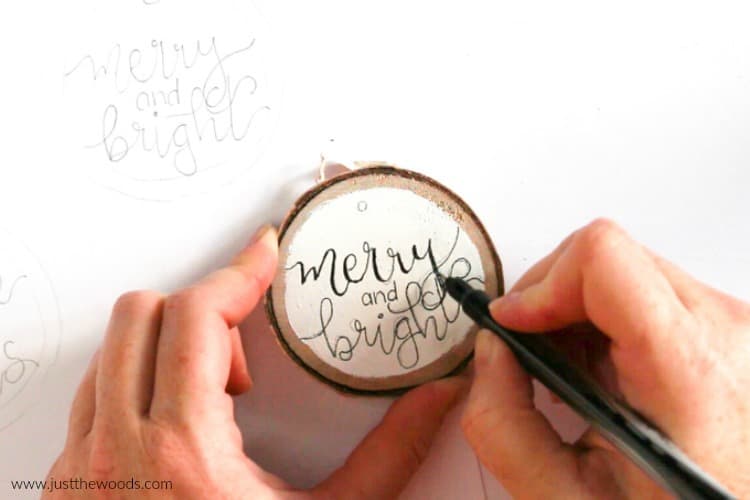 merry
and
bright
merry
and
bright
www.justthewoods.com